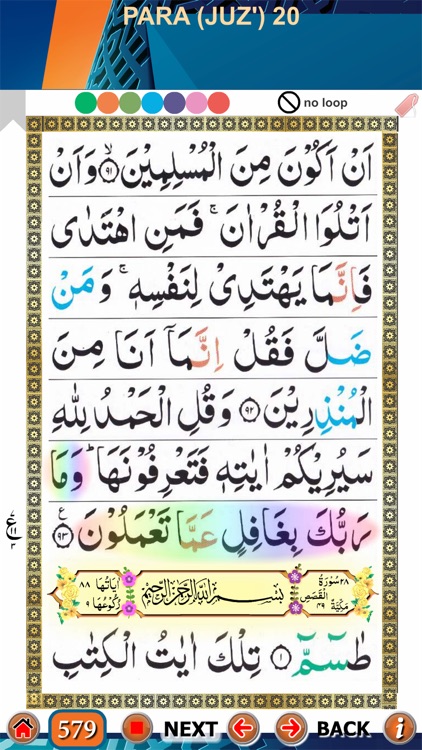 PARA (JUZ') 20
no loop
اَنْ اَكُوْنَ مِنَ الْمُسْلِمِيْنَ ۙ۹۱ وَاَنْ
اَتْلُوَا الْقُرْاٰنَ ۚ فَمَنِ اهْتَدٰى
فَاِنَّمَا يَهْتَدِىْ لِنَفْسِهٖ ۚ وَمَنْ
ضَلَّ فَقُلْ اِنَّمَاۤ اَنَا مِنَ
الْمُنْذِرِيْنَ ۹۲ وَقُلِ الْحَمْدُ لِلّٰهِ
سَيُرِيْكُمْ اٰيٰتِهٖ فَتَعْرِفُوْنَهَا ؕ وَمَا
رَبُّكَ بِغَافِلٍ عَمَّا تَعْمَلُوْنَ ۹۳ ع
ع ۱۱
سُوْرَةُ ۲۸
الْقَصَصِ
مَكِّيَّةٌ ۴۹
بِسْمِ اللّٰهِ الرَّحْمٰنِ الرَّحِيْمِ
اٰيَاتُهَا ۸۸
رُكُوْعُهَا ۹
طٰسٓمّٓ ۱ تِلْكَ اٰيٰتُ الْكِتٰبِ
579 NEXT BACK i